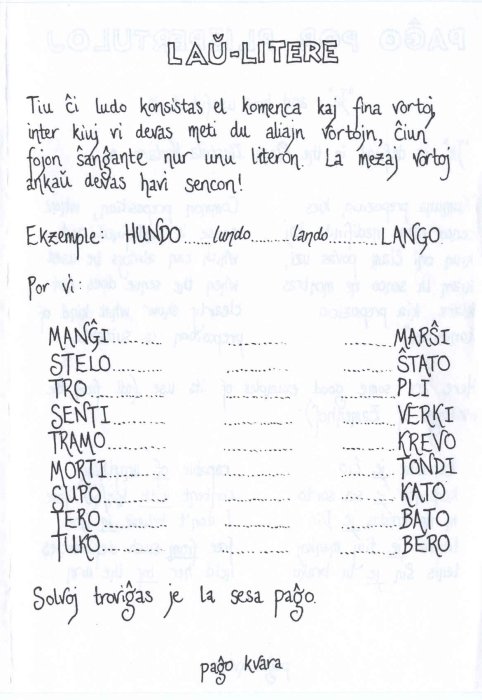 LAŬ-LITERE
Tiu ĉi ludo konsistas el komenca kaj fina vortoj,
inter kiuj vi devas meti du aliajn vortojn, ĉiun
fojon ŝanĝante nur unu literon. La mezaj vortoj
ankaŭ devas havi sencon!
Ekzemple: HUNDO.....lundo........lando........LANGO.
Por vi:
MANĜI........ ............ ........MARŜI
STELO........ ............ ........ŜTATO
TRO........ ............ ........PLI
SENTI........ ............ ........VERKI
TRAMO........ ............ ........KREVO
MORTI........ ............ ........TONDI
SUPO........ ............ ........KATO
TERO........ ............ ........BATO
TUKO........ ............ ........BERO
Solvoj troviĝas je la sesa paĝo.
paĝo kvara